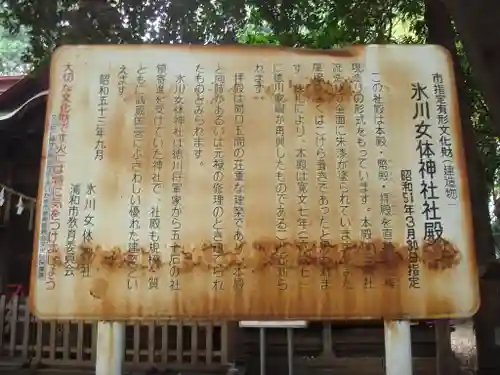 市指定有形文化財（建造物）
氷川女体神社社殿
昭和51年3月30日指定
この社殿は本殿・幣殿・拝殿を直
現造りの形式をもっています。本殿は三
流造りで全面に朱漆が塗られています。
屋根は こけら葺きであったと
札により、本殿は寛文七年（一六六七
に徳川家綱が再興したものであること
れます。
拝殿は間口五間の荘重な建築であり、本殿
と同時かあるいは元禄の修理のとき造られ
たものとみられます。
氷川女体神社は徳川将軍家から五十石の社
領寄進を受けていた神社で、社殿は規模、質
ともに武蔵国一宮にふさわしい優れた建築とい
えます。
昭和五十三年九月
氷川女体神社
浦和市教育委員会
大切な文化財です火には特に気をつけましょう